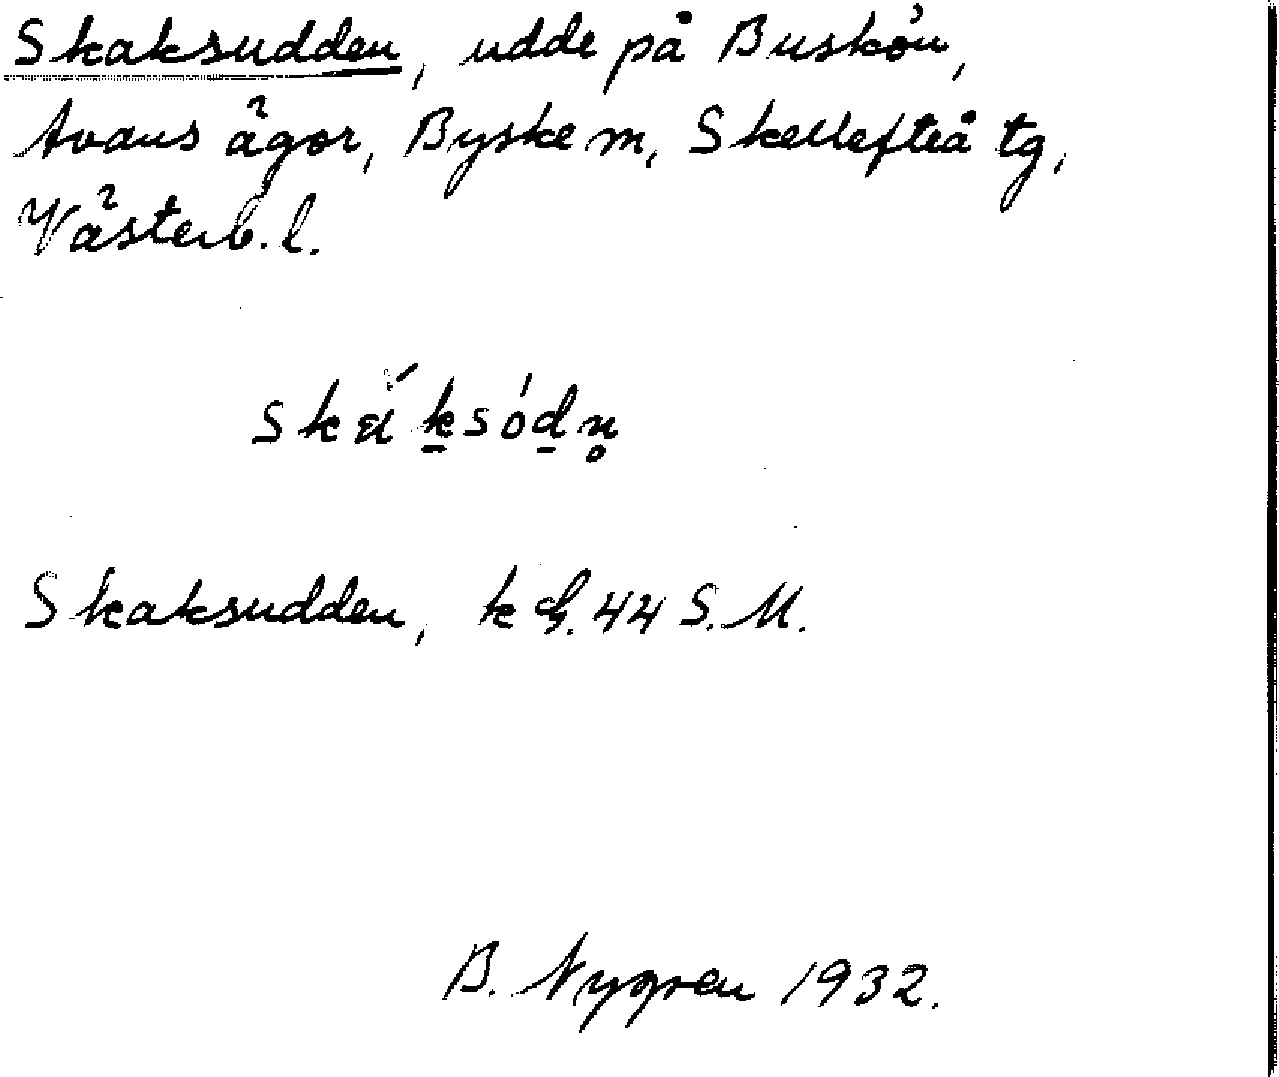 Skaksudden, udde på Buskön,
Avans ägor, Byske m, Skellefteå tg,
Västerb. l.
Skaksudden, k bl. 44 S. M.
B. Nygren 1932.